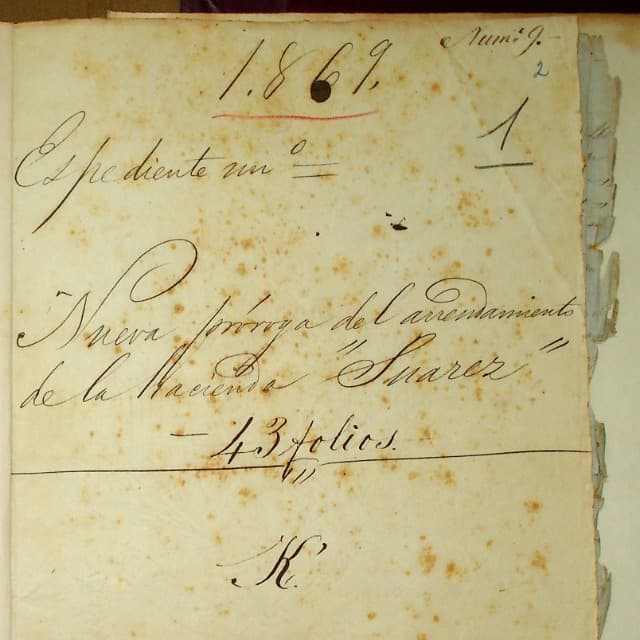 Num.º 9.
2
1.869.
1
Espediente nun.º
Nueva próroga del arrendamiento
de la hacienda "Suarez"
- 43 folios.
K.